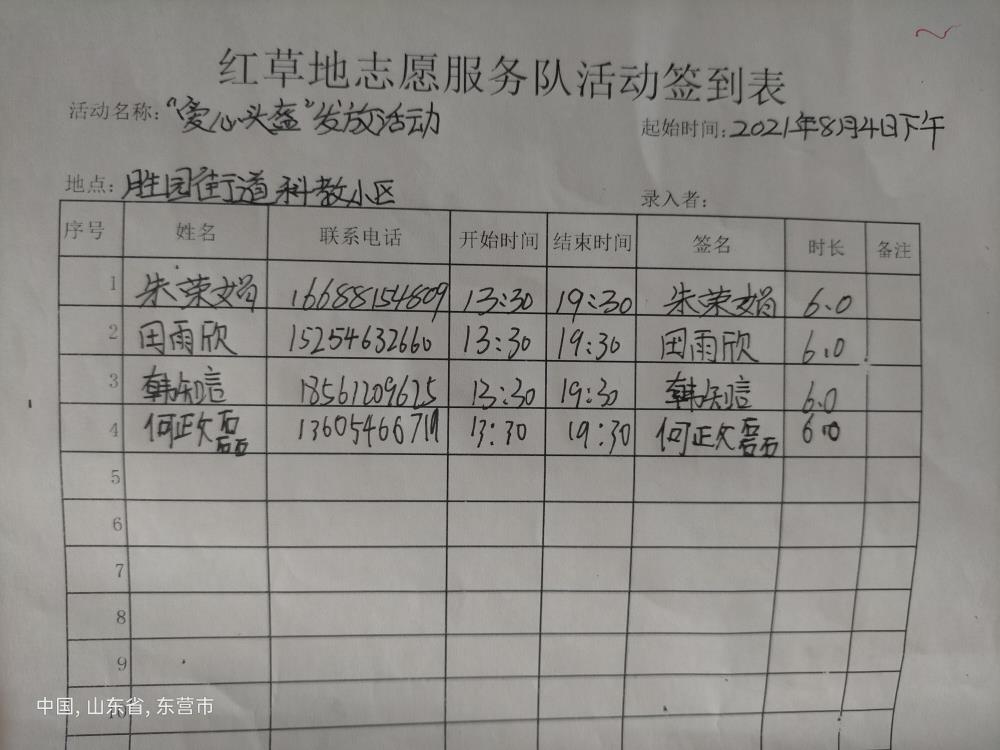 红草地志愿服务队活动签到表
活动名称："爱心头盔"发放活动
起始时间：2021年8月4日下午
地点：胜园街道科教小区
录入者：
序号 姓名 联系电话 开始时间 结束时间 签名 时长 备注
1 朱荣娟 16688154809 13:30 19:30 朱荣娟 6.0
2 田雨欣 15254632660 13:30 19:30 田雨欣 6.0
3 韩知言 18561209625 13:30 19:30 韩知言 6.0
4 何政磊 13605466719 13:30 19:30 何政磊 6.0
5
6
7
8
9
10
中国, 山东省, 东营市